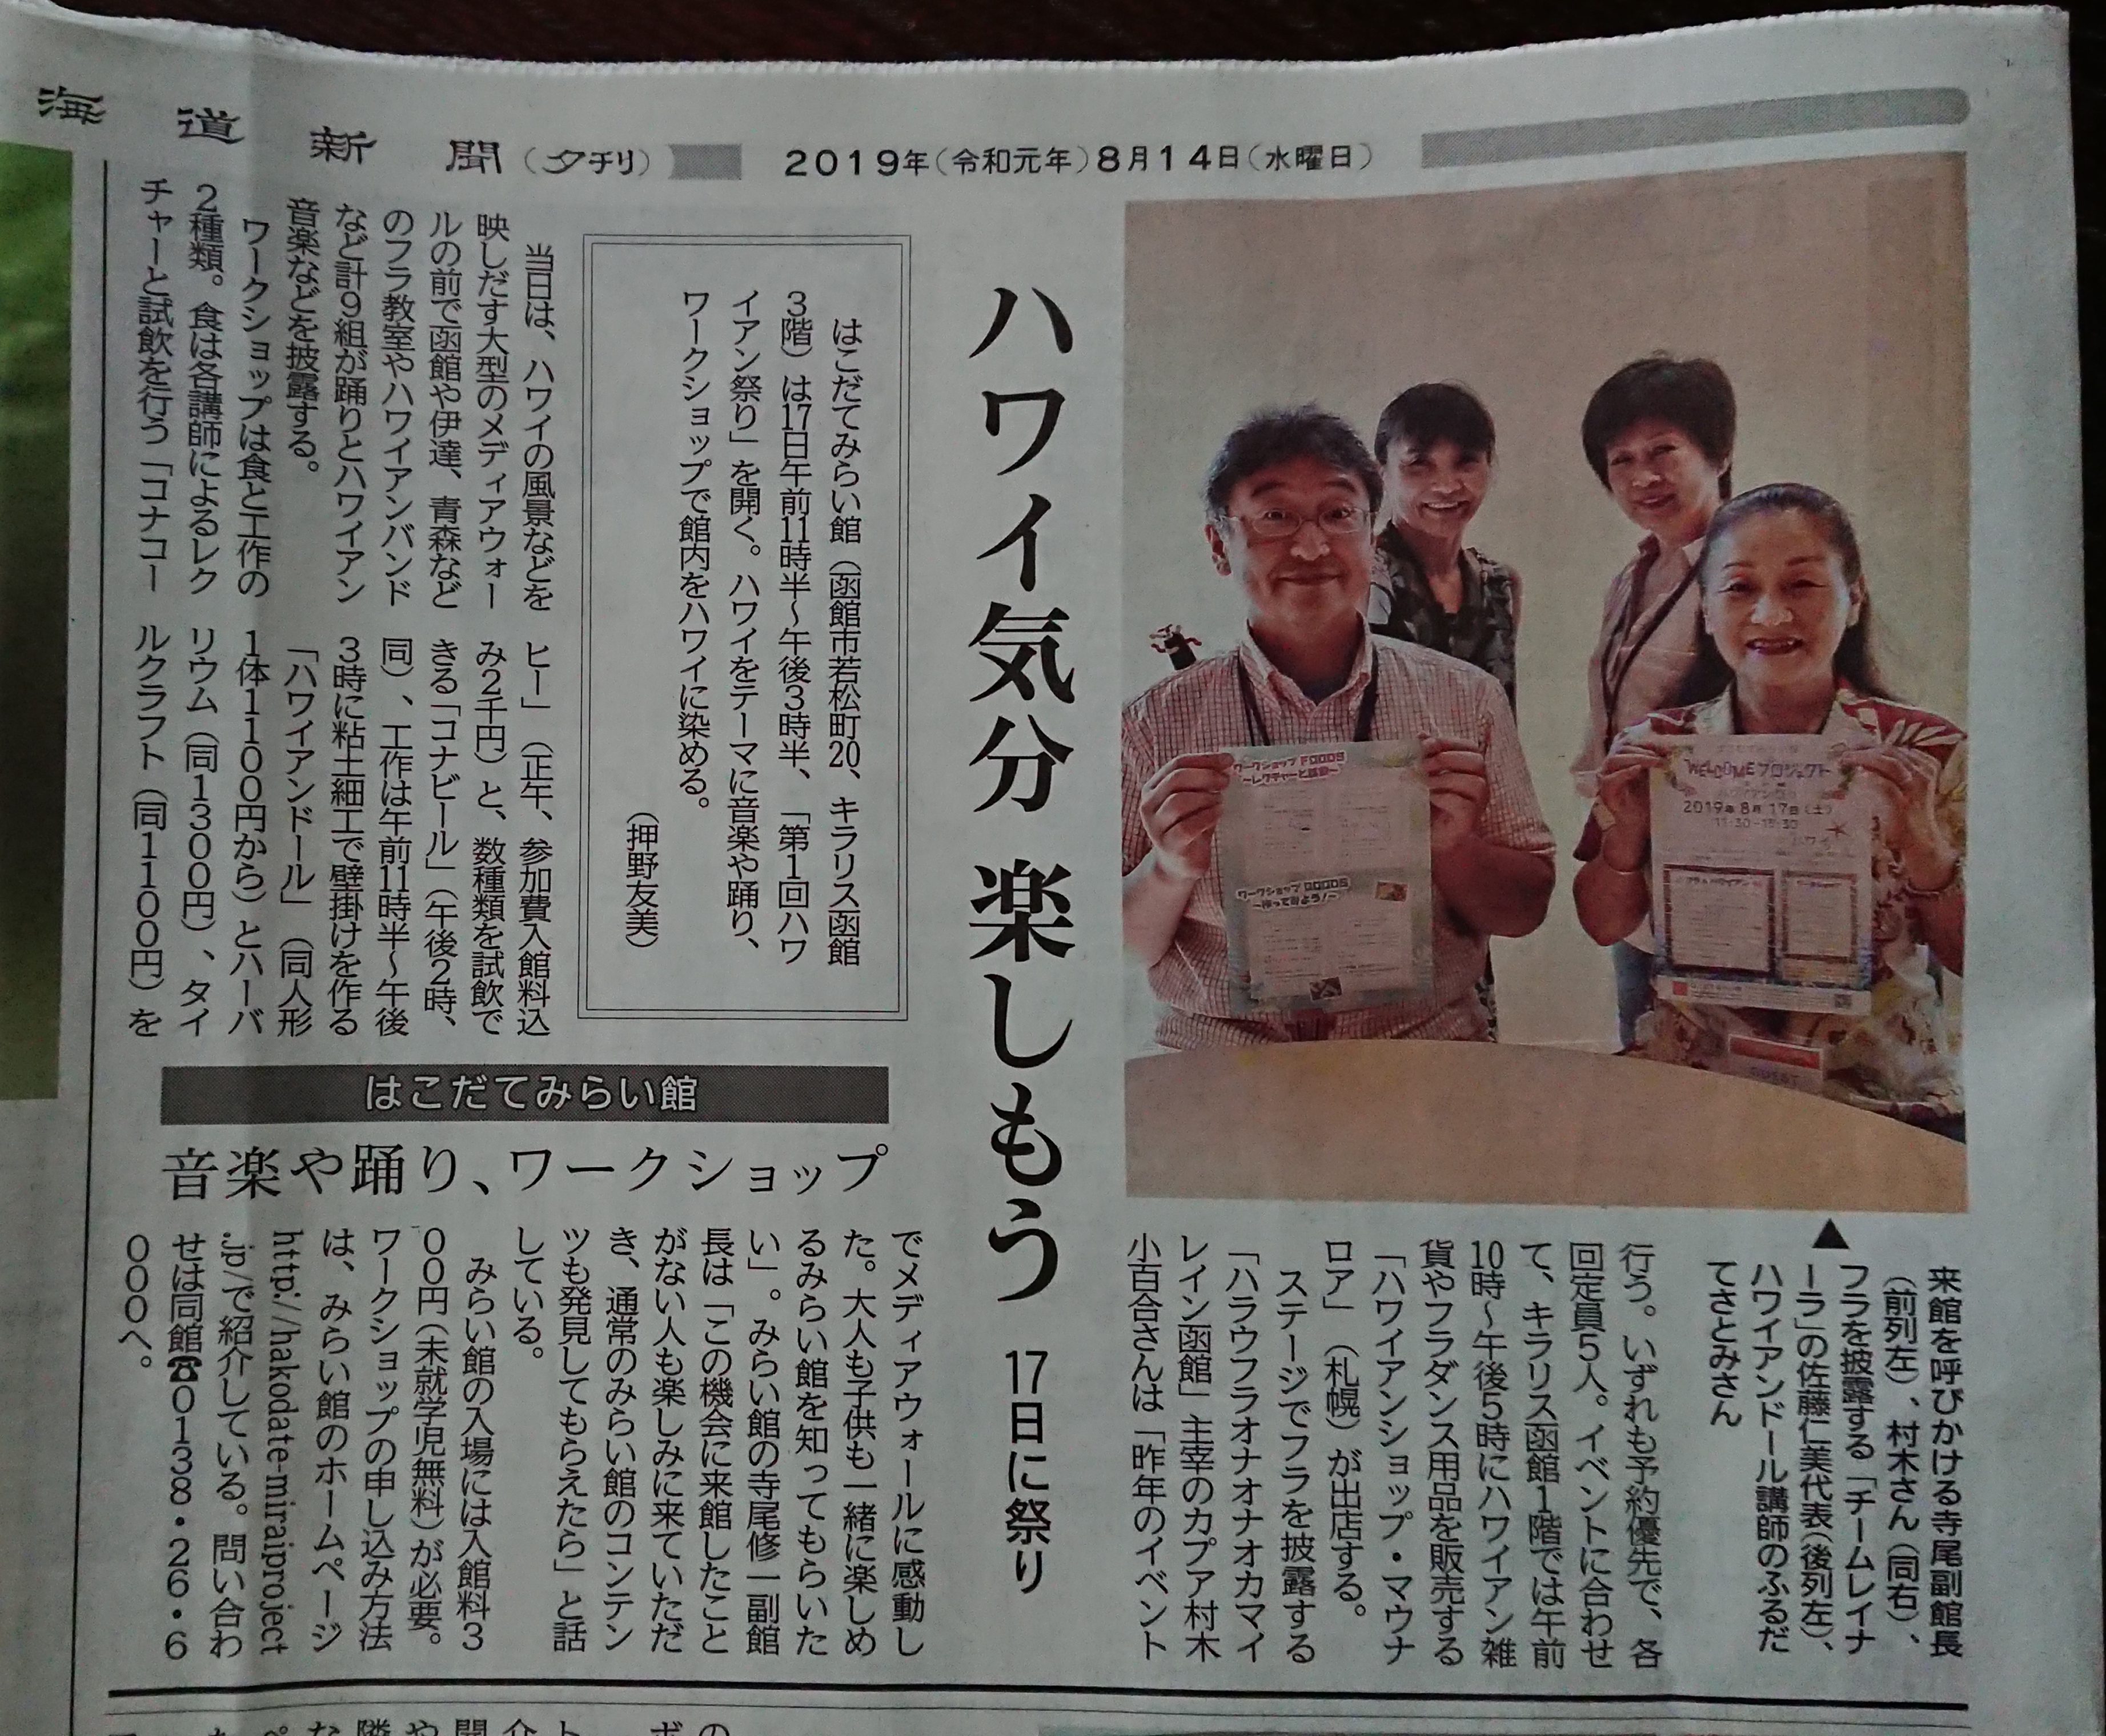 海道新聞(夕刊)
2019年(令和元年)8月14日(水曜日)
ハワイ気分 楽しもう
17日に祭り
はこだてみらい館(函館市若松町20、キラリス函館
3階)は17日午前11時半~午後3時半、「第1回ハワ
イアン祭り」を開く。ハワイをテーマに音楽や踊り、
ワークショップで館内をハワイに染める。
(押野友美)
当日は、ハワイの風景などを
映しだす大型のメディアウォー
ルの前で函館や伊達、青森など
のフラ教室やハワイアンバンド
など計9組が踊りとハワイアン
音楽などを披露する。
ワークショップは食と工作の
2種類。食は各講師によるレク
チャーと試飲を行う「コナコー
ヒー」(正午、参加費入館料込
み2千円)と、数種類を試飲で
きる「コナビール」(午後2時、
同)、工作は午前11時半~午後
3時に粘土細工で壁掛けを作る
「ハワイアンドール」(同人形
1体1100円から)とハーバ
リウム(同1300円)、タイ
ルクラフト(同1100円)を
はこだてみらい館
音楽や踊り、ワークショップ
行う。いずれも予約優先で、各
回定員5人。イベントに合わせ
て、キラリス函館1階では午前
10時~午後5時にハワイアン雑
貨やフラダンス用品を販売する
「ハワイアンショップ・マウナ
ロア」(札幌)が出店する。
ステージでフラを披露する
「ハラウフラオナオナオカマイ
レイン函館」主宰のカプア村木
小百合さんは「昨年のイベント
でメディアウォールに感動し
た。大人も子供も一緒に楽しめ
るみらい館を知ってもらいた
い」。みらい館の寺尾修一副館
長は「この機会に来館したこと
がない人も楽しみに来ていただ
き、通常のみらい館のコンテン
ツも発見してもらえたら」と話
している。
みらい館の入場には入館料3
00円(未就学児無料)が必要。
ワークショップの申し込み方法
は、みらい館のホームページ
http://hakodate-miraiproject
.jp/で紹介している。問い合わ
せは同館☎0138・26・6
000へ。
▲
来館を呼びかける寺尾副館長
(前列左)、村木さん(同右)、
フラを披露する「チームレイナ
ーラ」の佐藤仁美代表(後列左)、
ハワイアンドール講師のふるだ
てさとみさん
ワークショップ FOODS
~レクチャーと試飲~
ワークショップ GOODS
~作って遊ぼう!~
WELCOMEプロジェクト
2019年8月17日(土)
11:30-15:30
ハワイ
GUEST